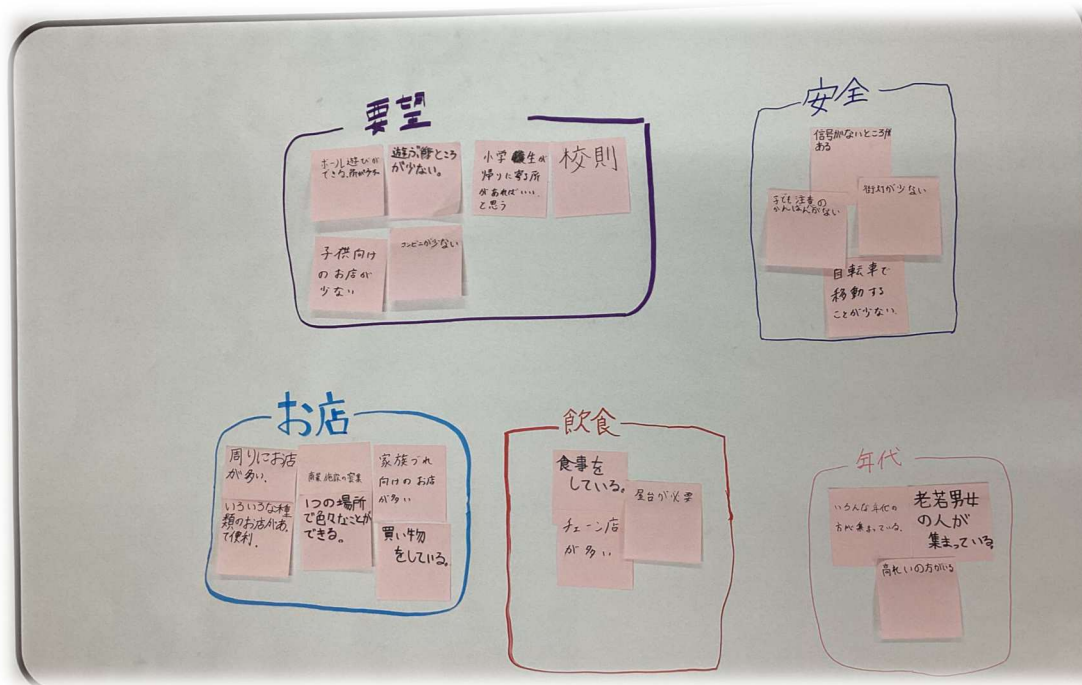 要望
ボール遊びが
できる所が少ない
遊ぶところ
が少ない。
小学生が
帰りに寄る所
があればいい
と思う
校則
子供向け
のお店が
少ない
コンビニが少ない
安全
信号がないところが
ある
子ども注意の
かんばんがない
街灯が少ない
自転車で
移動する
ことが少ない
お店
周りにお店
が多い.
商業施設の充実
家族づれ
向けのお店
が多い
いろいろな種
類のお店があっ
て便利.
1つの場所
で色々なことが
できる。
買い物
をしている。
飲食
食事を
している。
屋台が必要
チェーン店
が多い
年代
いろんな年代の
方が集まっている.
老若男女
の人が
集まっている。
高れいの方がいる